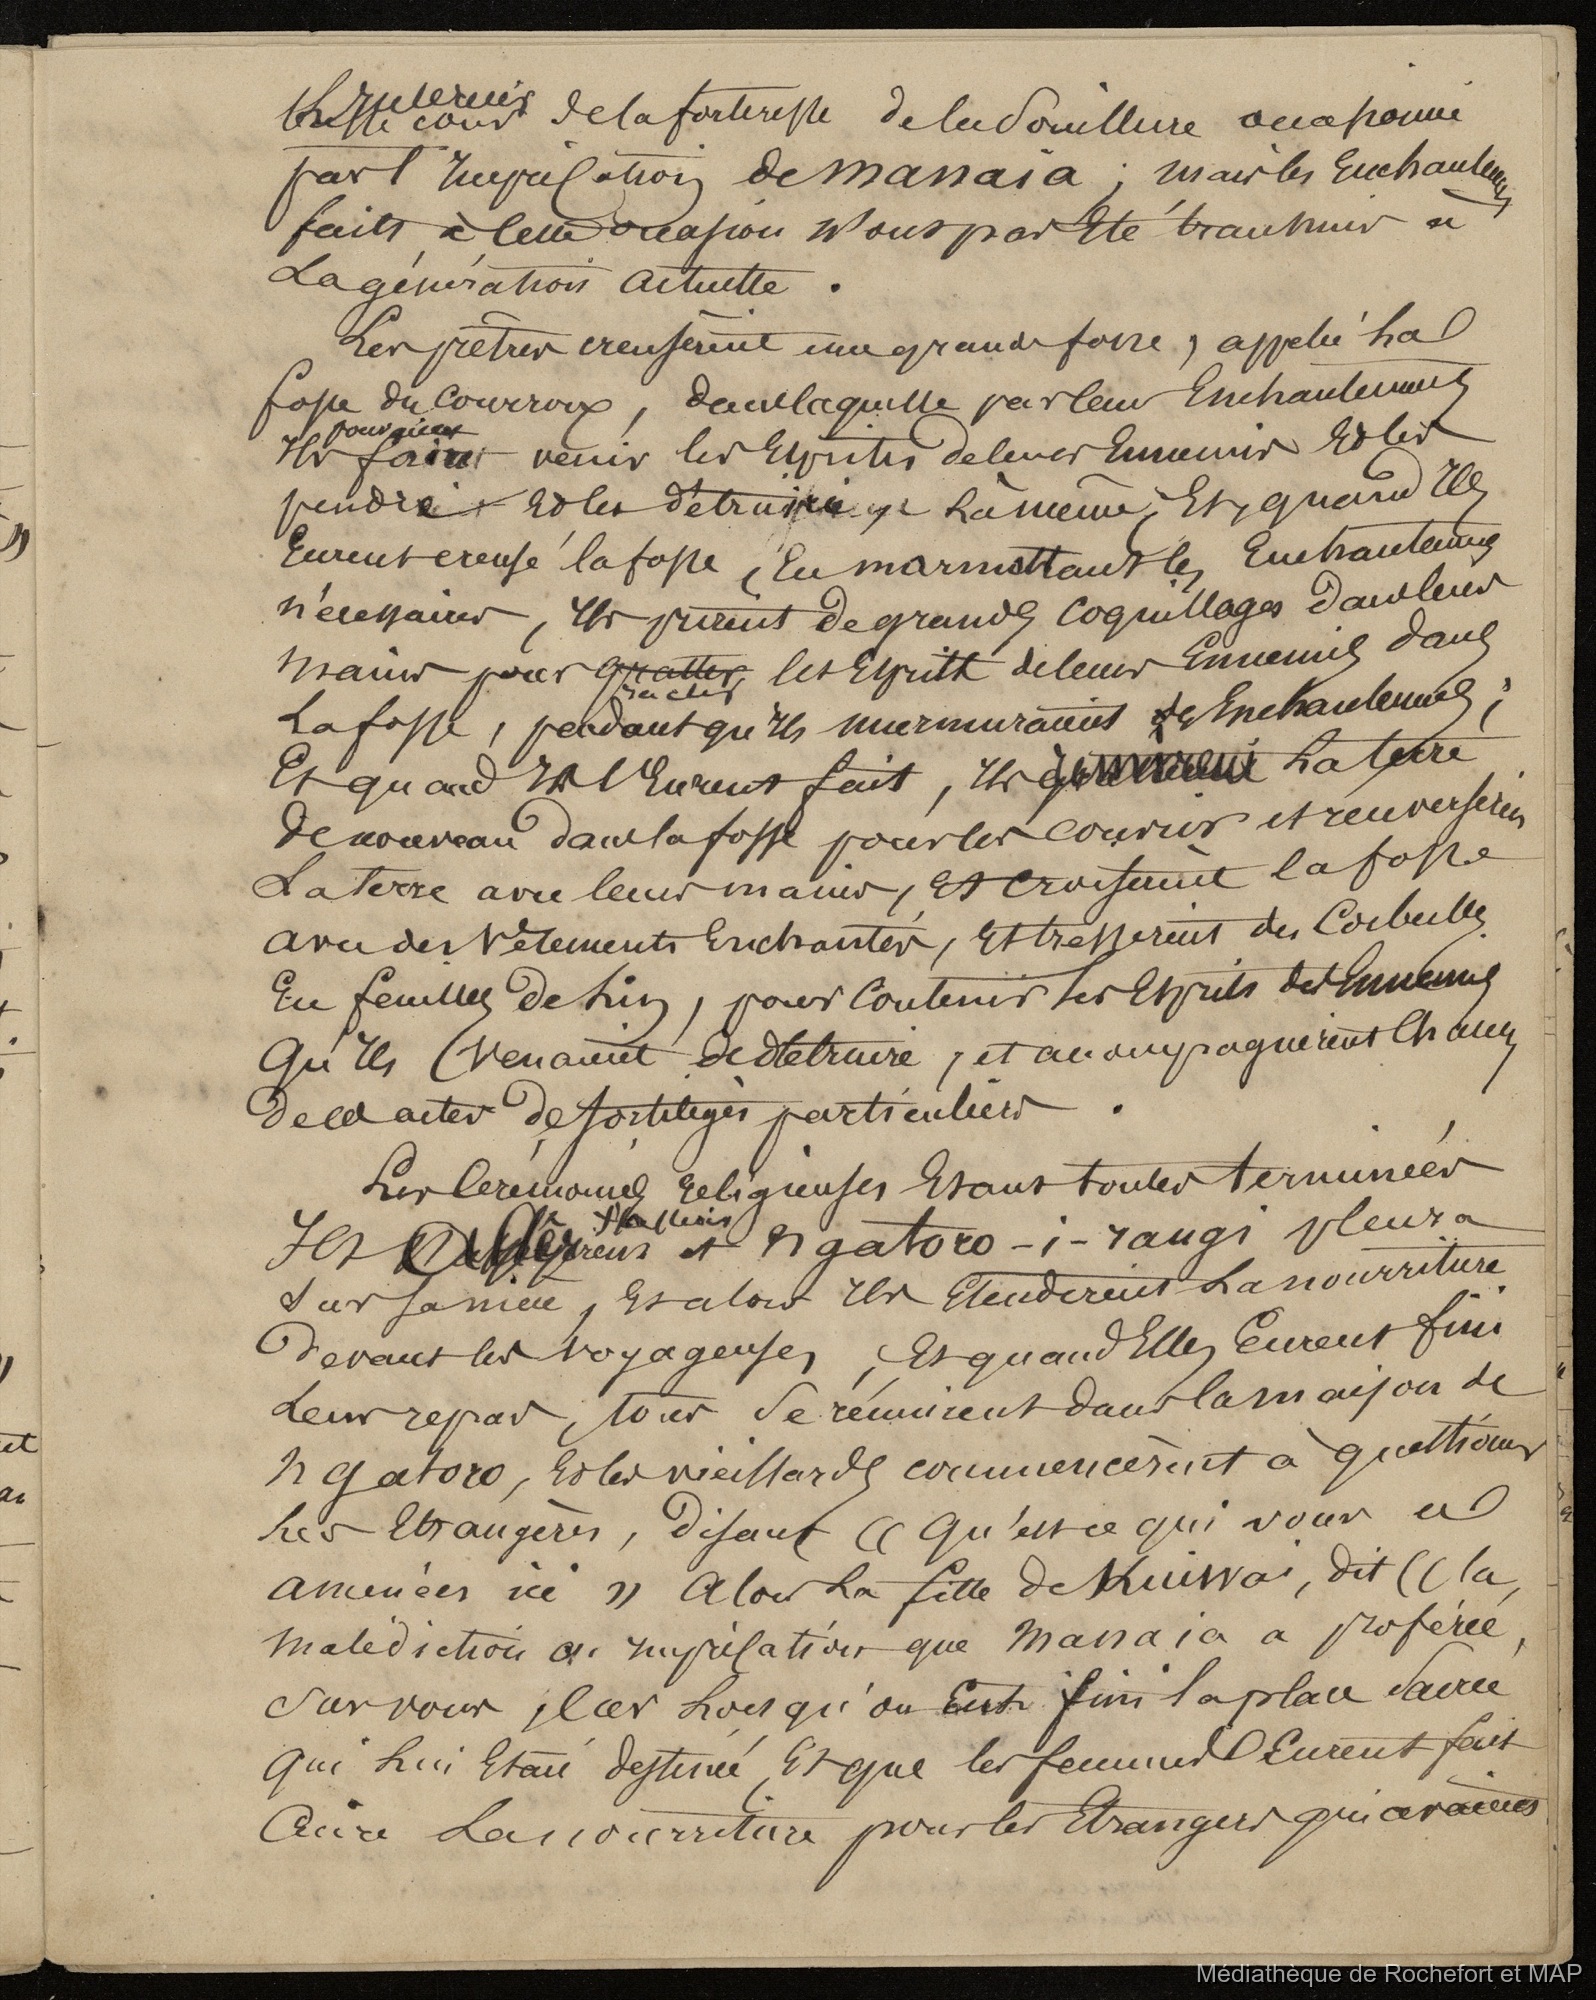 de la forteresse de la Souillure occasionné
par l'imprécation de Manaia ; mais les Enchantements
faits à cette occasion n'ont pas Eté transmis à
La génération actuelle .
Les prêtres creusèrent une grande fosse, appelé La
fosse du Courroux, dans laquelle par leur Enchantements
pouvaient
Ils faire venir les Esprits de leurs Ennemis Et les
pendre Et les détruire Là même ; Et, quand Ils
Eurent creusé la fosse, En marmottant les Enchantements
nécessaires, Ils prirent de grands Coquillages dans leurs
mains pour gratter les Esprits de leurs Ennemis dans
racler
La fosse, pendant qu'Ils murmuraient des Enchantements ;
Et quand Ils l'Eurent fait, Ils La terre
de nouveau dans la fosse pour les couvrir et renversèrent
La terre avec leurs mains, Et croisèrent la fosse
avec des Vêtements Enchantés, Et tressèrent des Corbeilles
En feuilles de Lin, pour Contenir Les Esprits des Ennemis
Qu'Ils Venaient de détruire, et accompagnèrent Chacun
de ces actes de sortilèges particuliers .
Les Cérémonies religieuses Etant toutes terminées
Ils et Ngatoro-i-rangi pleura
Sur sa nièce, Et alors Ils Etendirent La nourriture
devant les voyageuses, Et quand Elles Eurent fini
Leur repas, tous se réunirent dans la maison de
Ngatoro, Et les vieillards commencèrent à questionner
Les Etrangères, disant (( Qu'est ce qui vous a
amenées ici )) Alors La fille de Kuiwai, dit (( la
malédiction ou imprécation que Manaia a proférée,
Sur vous, car Lorsqu'on Eut fini la place Sacrée
Qui Lui Etait destinée, Et que les femmes Eurent fait
Cuire La nourriture pour les Etrangers qui avaient
Médiathèque de Rochefort et MAP